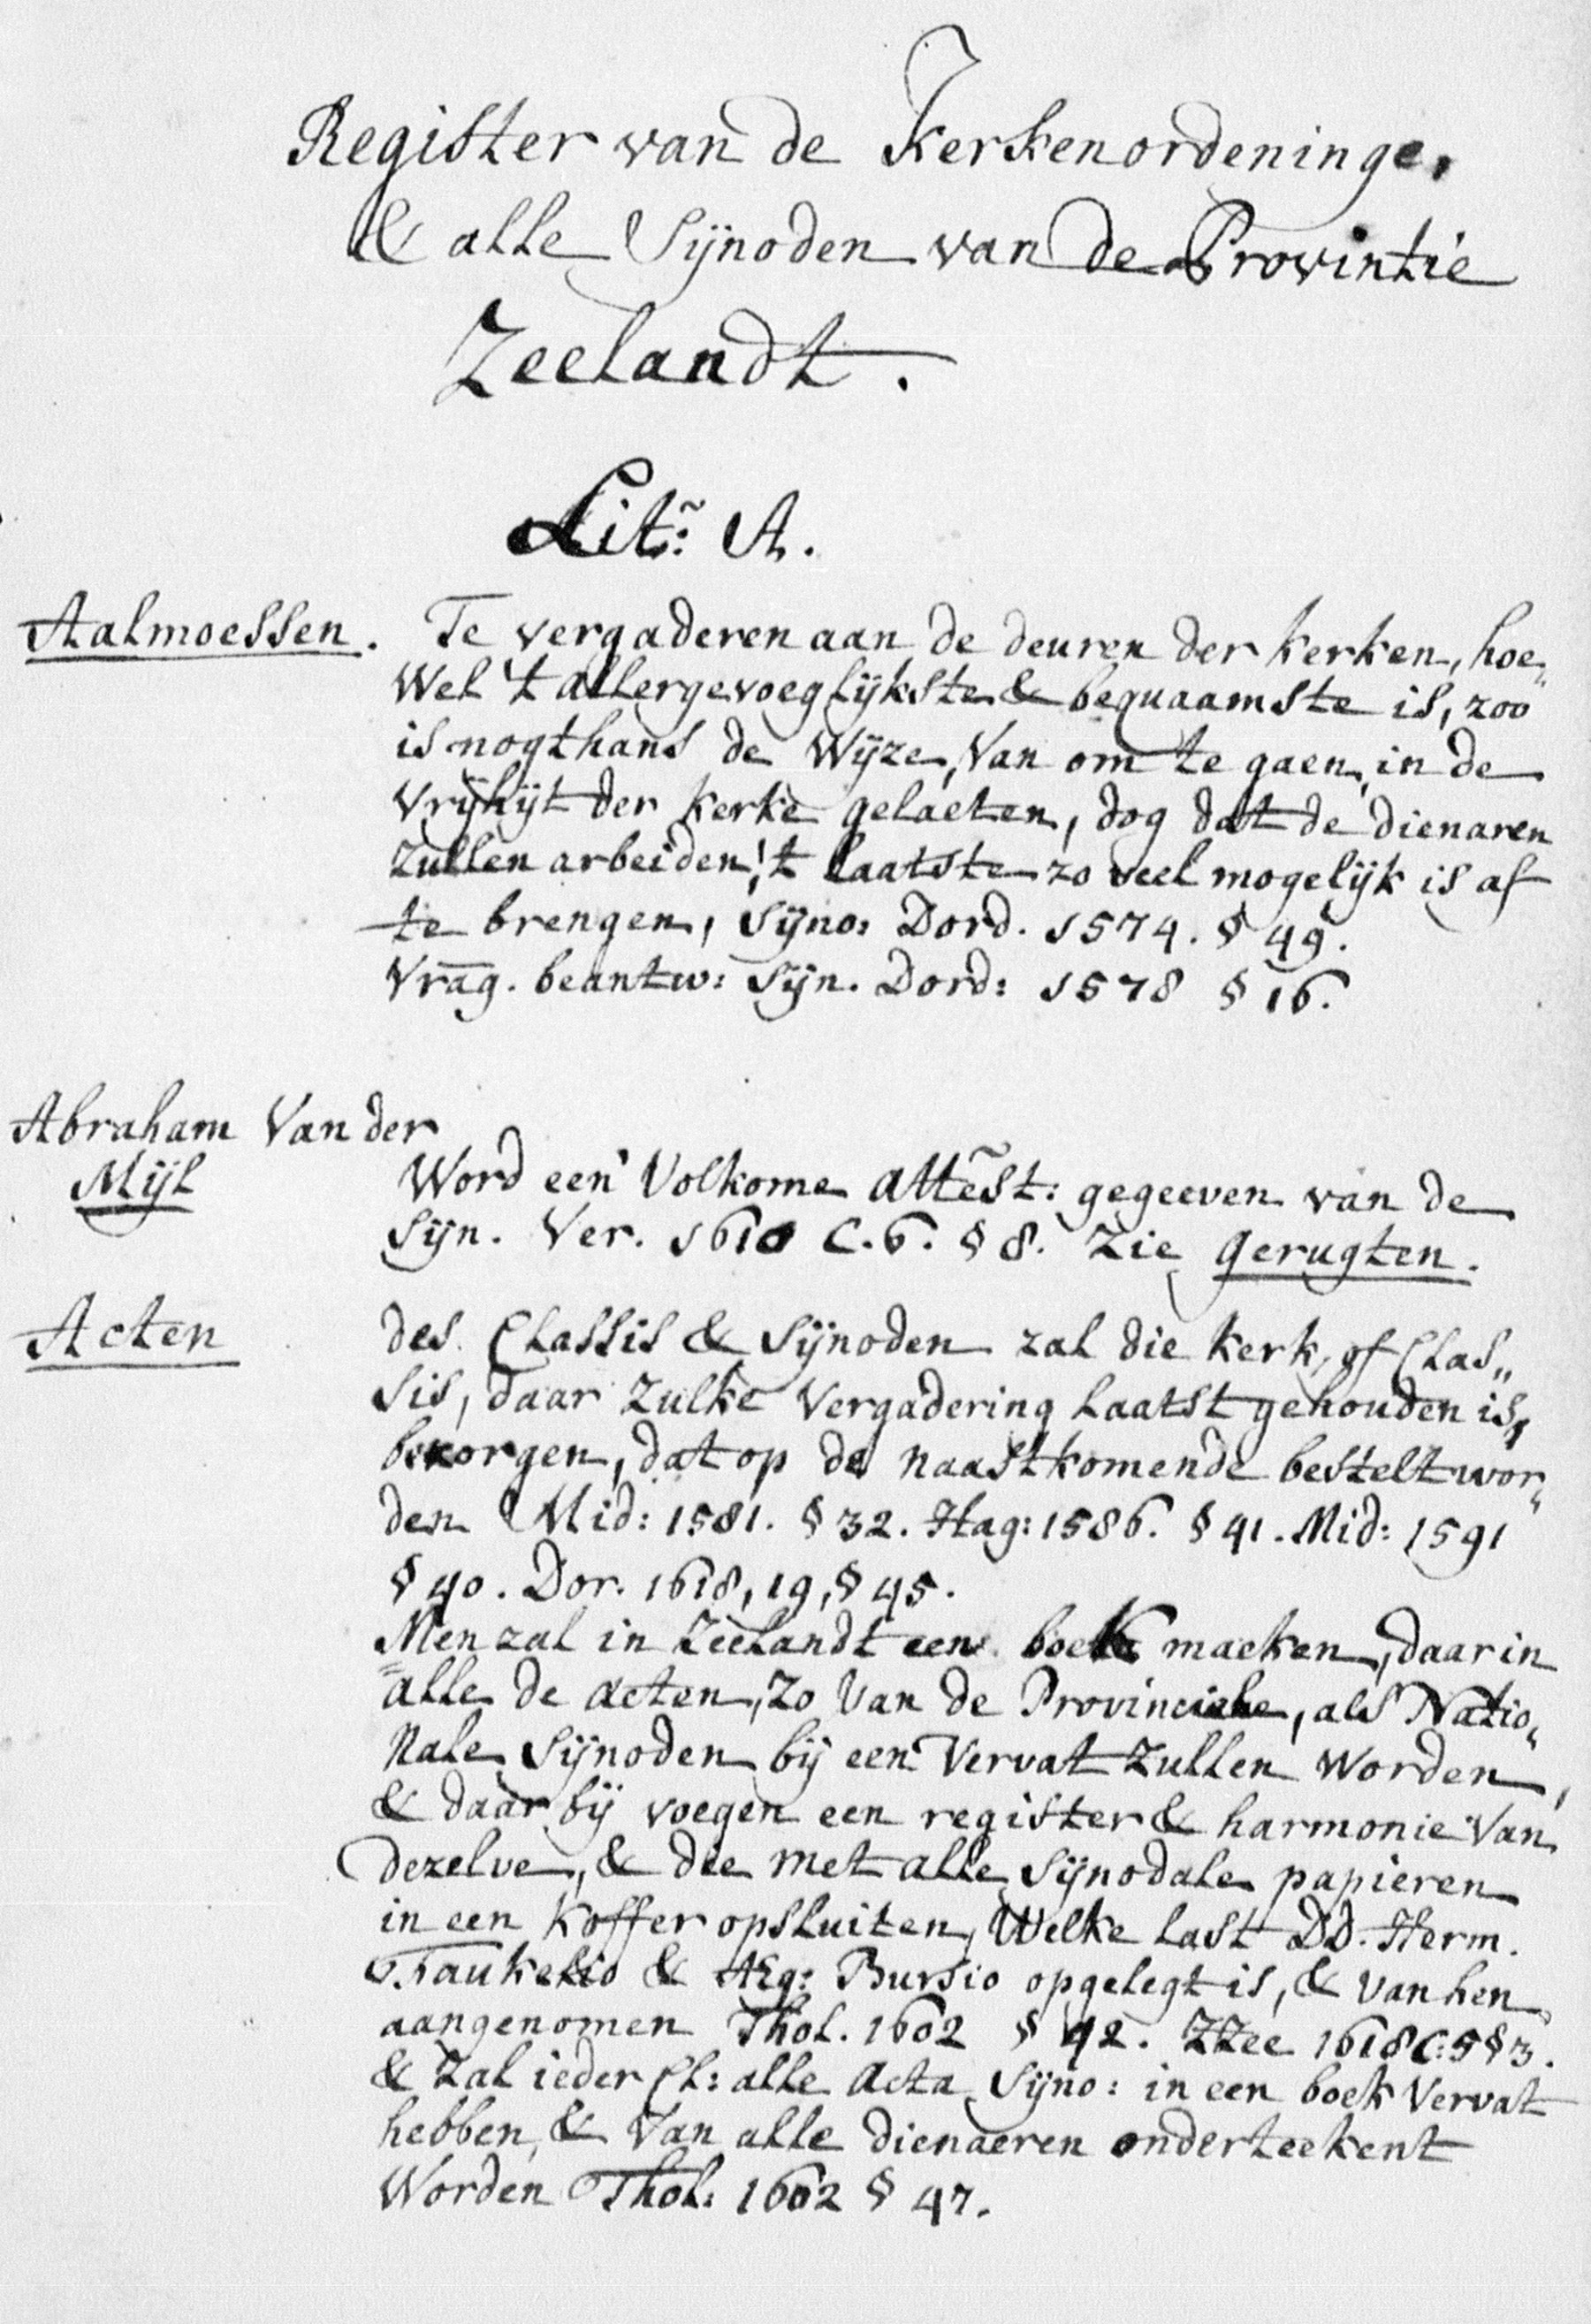 Register van de Kerkenordeninge,
& alle Sijnoden van de Provintie
Zeelandt.
Lit: A.
Aalmoessen. Te vergaderen aan de deuren der kerken, hoe„
Wel 't allergevoeglijkste & bequaamste is, zoo
is nogthans de Wijze, Van om te gaen, in de
Vrijhijt der kerke gelaeten, dog dat de dienaren
Zullen arbeiden, 't laatste zo veel mogelijk is af
te brengen, Sijno: Dord. 1574. § 49.
Vrag. beantw: Sijn. Dord: 1578 § 16.
Abraham Van der
Mijl Word een Volkome Attest: gegeeven van de
Sijn. Ver. 1610 C. 6. § 8. Zie Gerugten.
Acten des Classis & Sijnoden zal die kerk, of Clas„
sis, daar Zulke Vergadering laatst gehouden is,
bezorgen, dat op de naastkomende bestelt wor„
den Mid: 1581. § 32. Hag: 1586. § 41. Mid: 1591
§ 40. Dor. 1618, 19, § 45.
Men zal in Zeelandt een boek maeken, daar in
alle de acten, Zo Van de Provinciale, als Natio„
nale Sijnoden bij een Vervat Zullen Worden,
& daar bij voegen een register & harmonie Van
dezelve, & die met alle Sijnodale papieren
in een koffer opsluiten, Welke last DD. Herm.
Faukelio & AEg: Bursio opgelegt is, & Van hen
aangenomen Thol. 1602 § 42. ZZee 1618 C: 5 § 3.
& Zal ieder Cl: alle Acta Sijno: in een boek Vervat
hebben, & Van alle dienaeren onderteekent
Worden Thol: 1602 § 47.